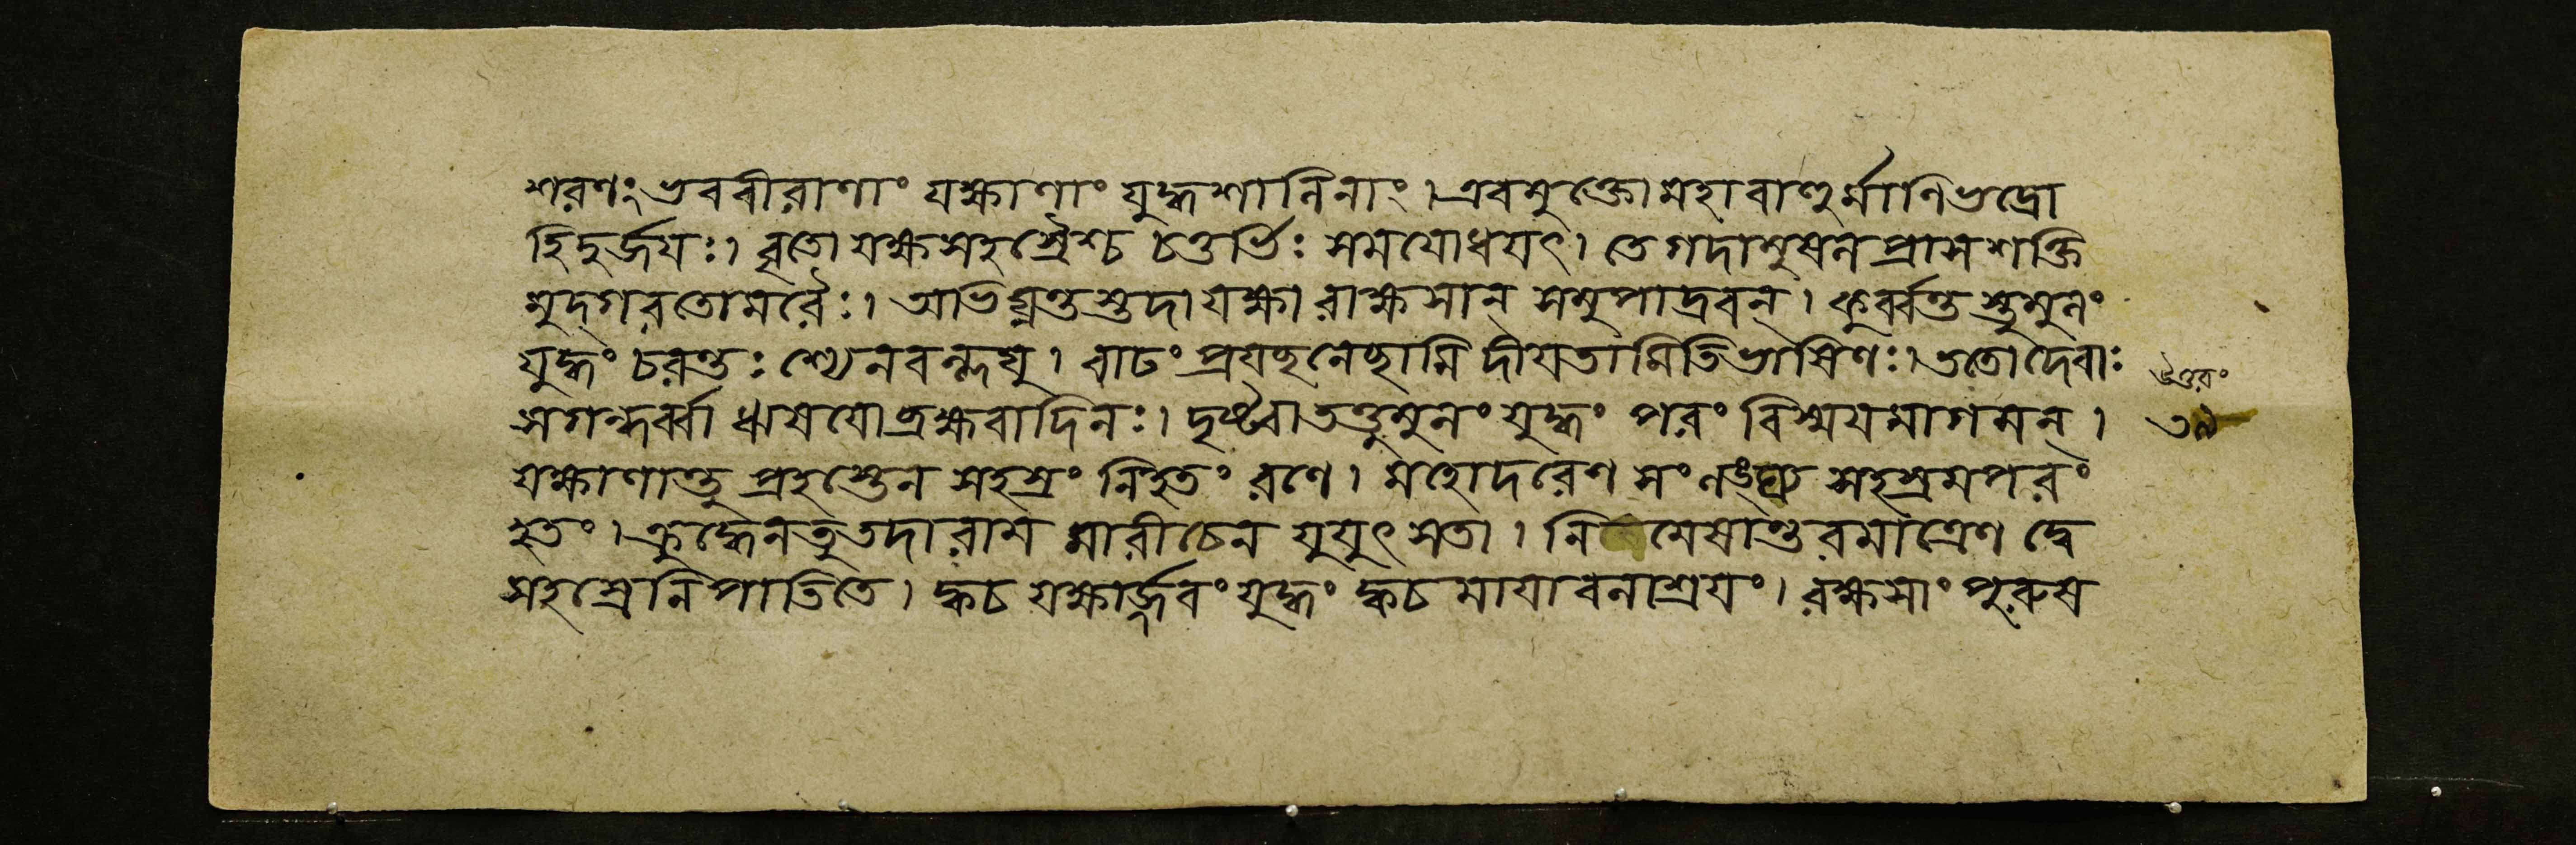 শরণং ভব বীরাণাং যক্ষাণাং যুদ্ধশালিনাং । এবমুক্তো মহাবাহুর্মানিভদ্রো
হি দুর্জয়ঃ । বৃতো যক্ষসহস্রৈশ্চ চতুর্ভিঃ সমযোধয়ৎ । তে গদামুষলপ্রাসশক্তি
মুদ্গরতোমরৈঃ । অভিঘ্নন্তস্তদা যক্ষা রাক্ষসান্ সমুপাদ্রবন্ । কুর্ব্বন্তস্তুমুলং
যুদ্ধং চরন্তঃ শ্যেনবল্লঘু । বাঢং প্রযচ্ছনেচ্ছামি দীয়তামিতিভাষিণঃ । ততো দেবাঃ
সগন্ধর্ব্বা ঋষয়ো ব্রহ্মবাদিনঃ । দৃষ্ট্বা তত্তুমুলং যুদ্ধং পরং বিস্ময়মাগমন্ ।
উত্তরং
৩৯
যক্ষাণান্তু প্রহস্তেন সহস্রং নিহতং রণে । মহোদরেণ সহস্রমপরং
হতং । ক্রুদ্ধেন তু তদা রাম মারীচেন যুযুৎসতা । নিমেষান্তরমাত্রেণ দ্বে
সহস্রে নিপাতিতে । ক্বচ যক্ষার্জ্জবং যুদ্ধং ক্বচ মায়াবলাশ্রয়ং । রক্ষসাং পুরুষ